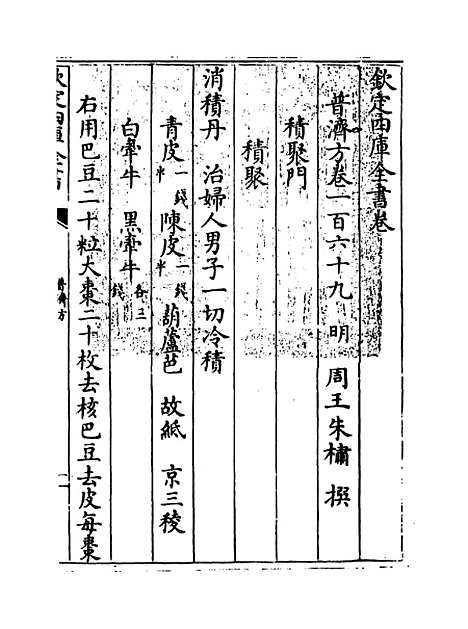 欽定四庫全書卷
普濟方卷一百六十九　明　周王朱橚　撰
積聚門
積聚
消積丹　治婦人男子一切冷積
青皮一錢半　陳皮一錢半　葫蘆芭　故紙　京三稜
白牽牛　黑牽牛各三錢
右用巴豆二十粒大棗二十枚去核巴豆去皮每棗
欽定四庫全書
普濟方
一